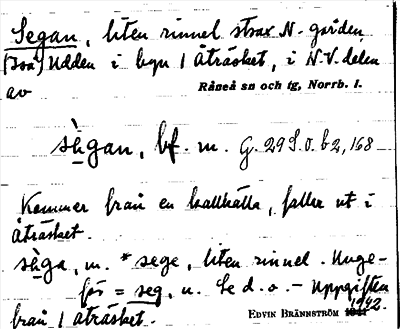 Segan, liten rinnel strax N. gården
Udden i byn Åträsket, i N.V. delen
av Råneå sn och tg, Norrb. l.
sègan, bf. m. G. 29 S.O. b 2, 168
Kommer från en kallkälla, faller ut i
Åträsket.
m. * sege, liten rinnel. Unge-
fär = seg, n. Se d. o. – Uppgiften
från Åträsket. EDVIN BRÄNNSTRÖM 1942.